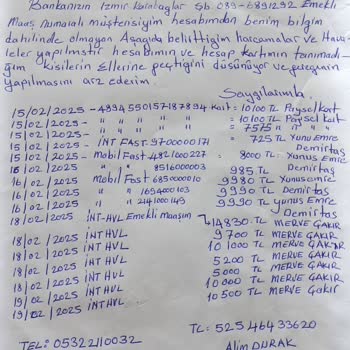 Bankanızın İzmir Karabağlar Şb. 039-6891292 Emekli
Maaş Numaralı müşterisiyim hesabımdan benim bilgim
dahilinde olmayan Aşağıda belirttiğim harcamalar ve Hava-
leler yapılmıştır hesabımın ve hesap kartımın tanımadı-
ğım kişilerin Ellerine geçtiğini düşünüyor ve gereğinin
yapılmasını arz ederim.
Saygılarımla,
15/02/2025 - 4894550157187894 Kart = 10100 TL Paysel kart
15/02/2025 - " " " " = 10100 TL Paysel kart
15/02/2025 - " " " " 7575 " " "
15/02/2025 - İNT FAST: 9700000171 = 725 TL Yunus Emre Demirtaş
15/02/2025 - Mobil Fast 4821000227 = 8000 TL: Yunus Emre Demirtaş
15/02/2025 " " 8516000003 985 TL Demirtaş
16/02/2025 Mobil Fast 6850000010 9980 TL Yunus emre
16/02/2025 " " 1654000103 9990 TL Demirtaş
16/02/2025 " " 2141000149 9990 TL Yunus Emre Demirtaş
18/02/2025 İNT-HVL Emekli Maaşım 14830 TL MERVE ÇAKIR
18/02/2025 İNT HVL 9700 TL MERVE ÇAKIR
18/02/2025 İNT HVL 10 1000 TL MERVE ÇAKIR
18/02/2025 İNT HVL 5200 TL MERVE ÇAKIR
18/02/2025 İNT HVL 5000 TL MERVE ÇAKIR
19/02/2025 İNT HVL 10000 TL MERVE ÇAKIR
19/02/2025 İNTHVL 10500 TL MERVE Çakır
TC: 52546433620
TEL: 05322110032 Alim DURAK